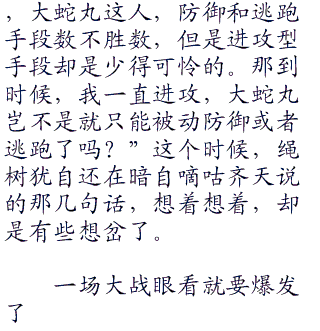 ，大蛇丸这人，防御和逃跑
手段数不胜数，但是进攻型
手段却是少得可怜的。那到
时候，我一直进攻，大蛇丸
岂不是就只能被动防御或者
逃跑了吗？”这个时候，绳
树犹自还在暗自嘀咕齐天说
的那几句话，想着想着，却
是有些想岔了。
一场大战眼看就要爆发
了